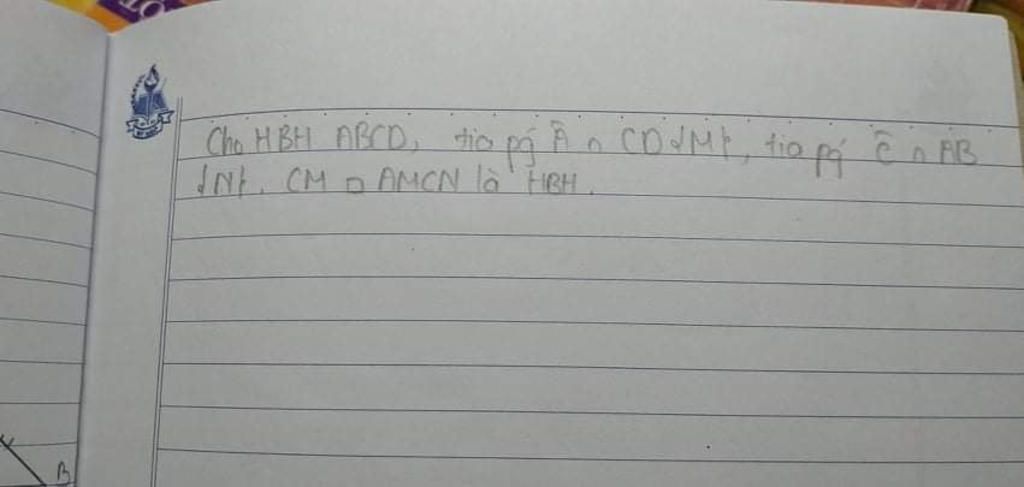 Cho HBH ABCD, tia pg Â ∩ CD tại {M}, tia pg Ĉ ∩ AB
{N}. CM ▱ AMCN là HBH.
B